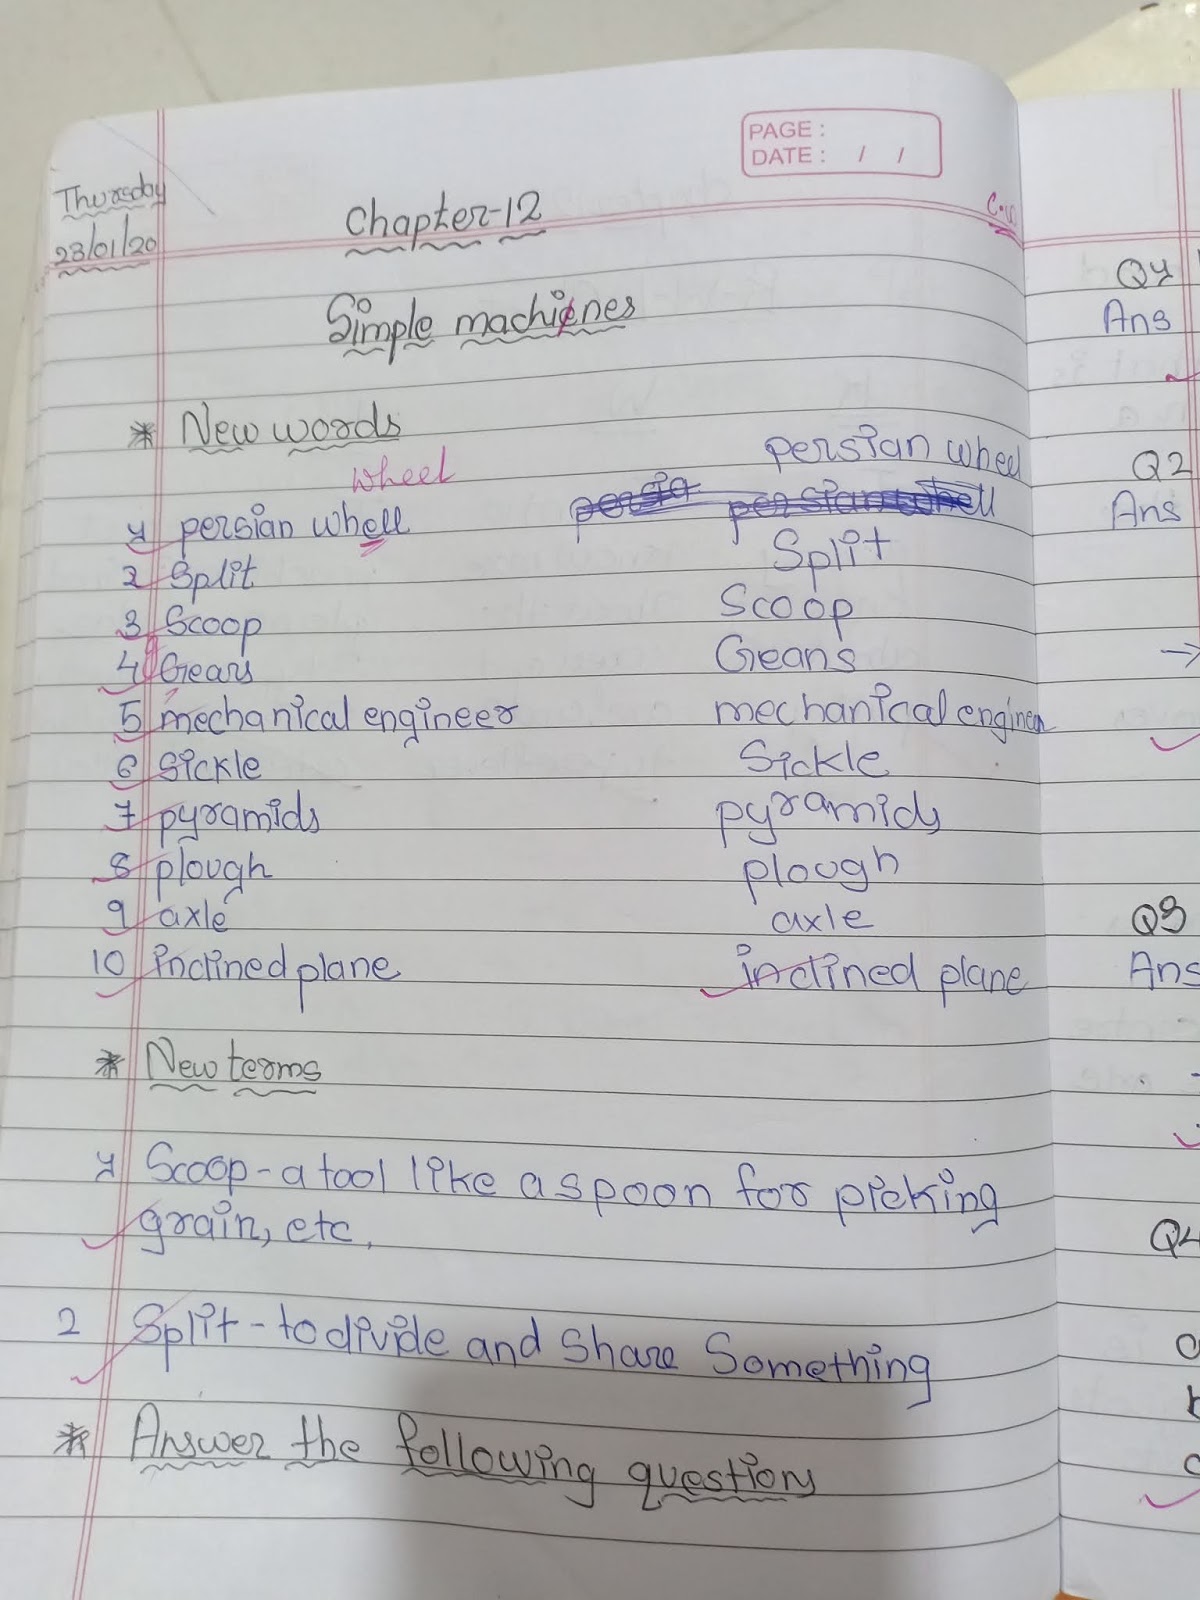 PAGE :
DATE : / /
Thursday
23/01/20
Chapter-12
C.W
Simple machines
* New words
wheel
persian wheel
1 persian whell
2 Split
Split
3 Scoop
Scoop
4 Gears
Gears
5 mechanical engineer
mechanical engineer
6 Sickle
Sickle
7 pyramids
pyramids
8 plough
plough
9 axle
axle
10 inclined plane
inclined plane
* New terms
1 Scoop - a tool like a spoon for picking
grain, etc,
2 Split - to divide and Share Something
* Answer the following questions
Q1
Ans
Q2
Ans
→
Q3
Ans
Q4